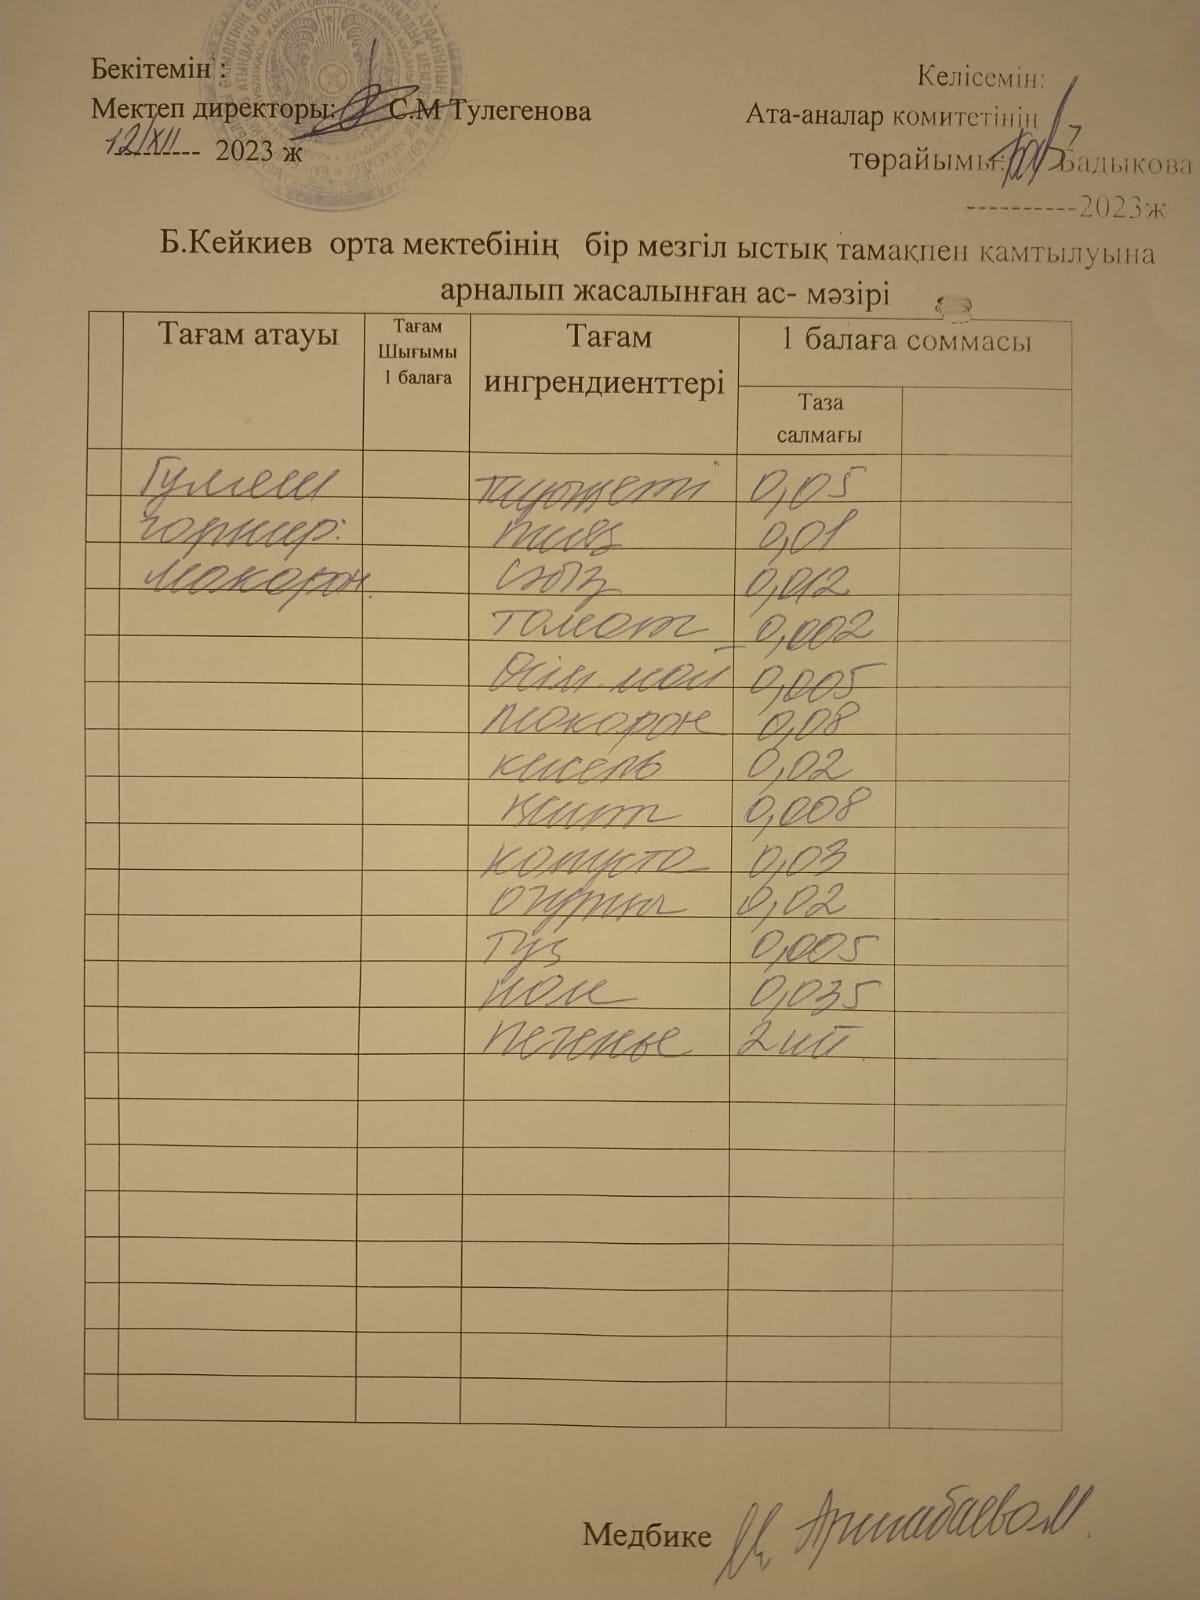 Бекітемін :
Мектеп директоры: С.М Тулегенова
12/XII 2023 ж
Келісемін:
Ата-аналар комитетінің
төрайымы: Бадыкова
----------2023ж
Б.Кейкиев орта мектебінің бір мезгіл ыстық тамақпен қамтылуына
арналып жасалынған ас- мәзірі
Тағам атауы
Тағам
Шығымы
1 балаға
Тағам
ингрендиенттері
1 балаға соммасы
Таза
салмағы
Гуляш 0,05
горнир: пияз 0,01
макорон. сәбіз 0,012
томат 0,002
Өсім. май 0,005
макорон 0,08
кисель 0,02
қант 0,008
копуста 0,03
огурцы 0,02
тұз 0,005
нан 0,035
печенье 2 шт
Медбике